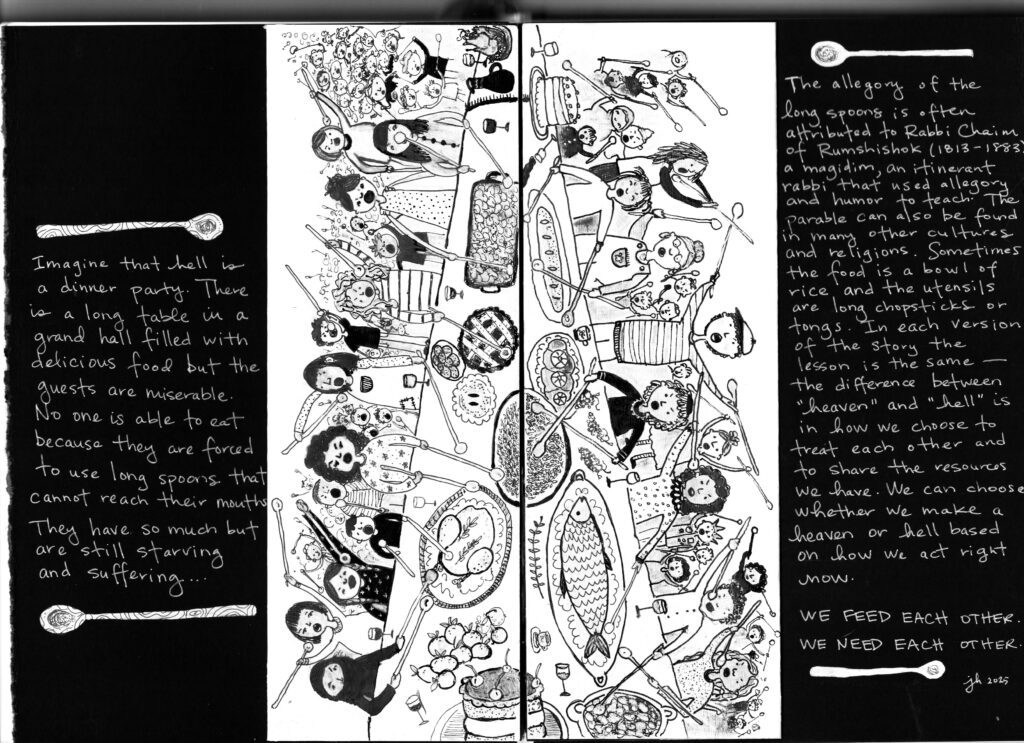 Imagine that hell is
a dinner party. There
is a long table in a
grand hall filled with
delicious food but the
guests are miserable.
No one is able to eat
because they are forced
to use long spoons that
cannot reach their mouths
They have so much but
are still starving
and suffering...
The allegory of the
long spoons is often
attributed to Rabbi Chaim
of Rumshishok (1813-1883)
a magidim, an itinerant
rabbi that used allegory
and humor to teach. The
parable can also be found
in many other cultures
and religions. Sometimes
the food is a bowl of
rice and the utensils
are long chopsticks or
tongs. In each version
of the story the
lesson is the same —
the difference between
"heaven" and "hell" is
in how we choose to
treat each other and
to share the resources
we have. We can choose
whether we make a
heaven or hell based
on how we act right
now.
WE FEED EACH OTHER.
WE NEED EACH OTHER.
jh 2025